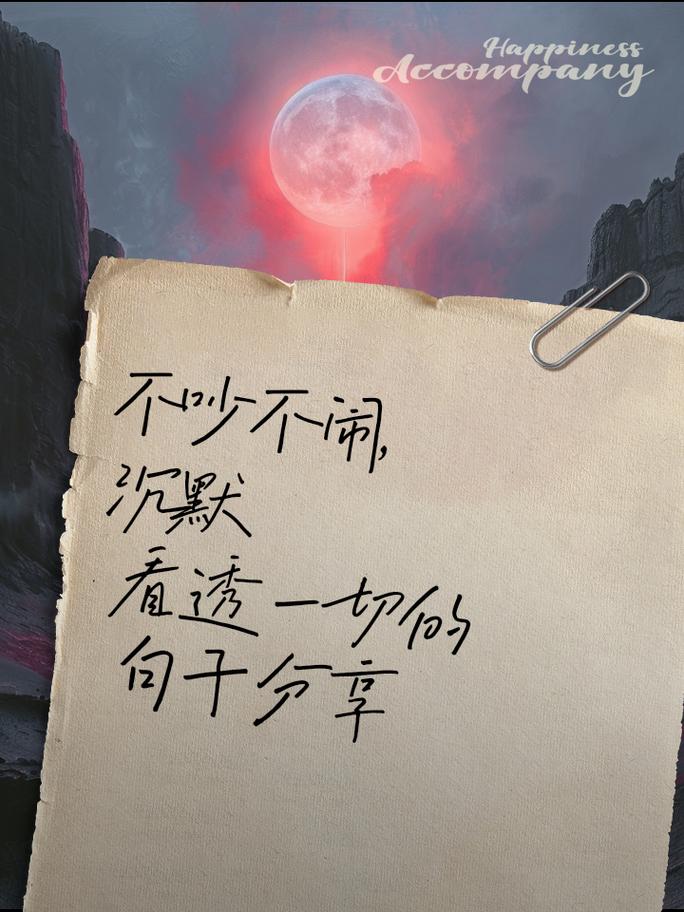 Happiness
Accompany
不吵不闹,
沉默
看透一切的
句子分享